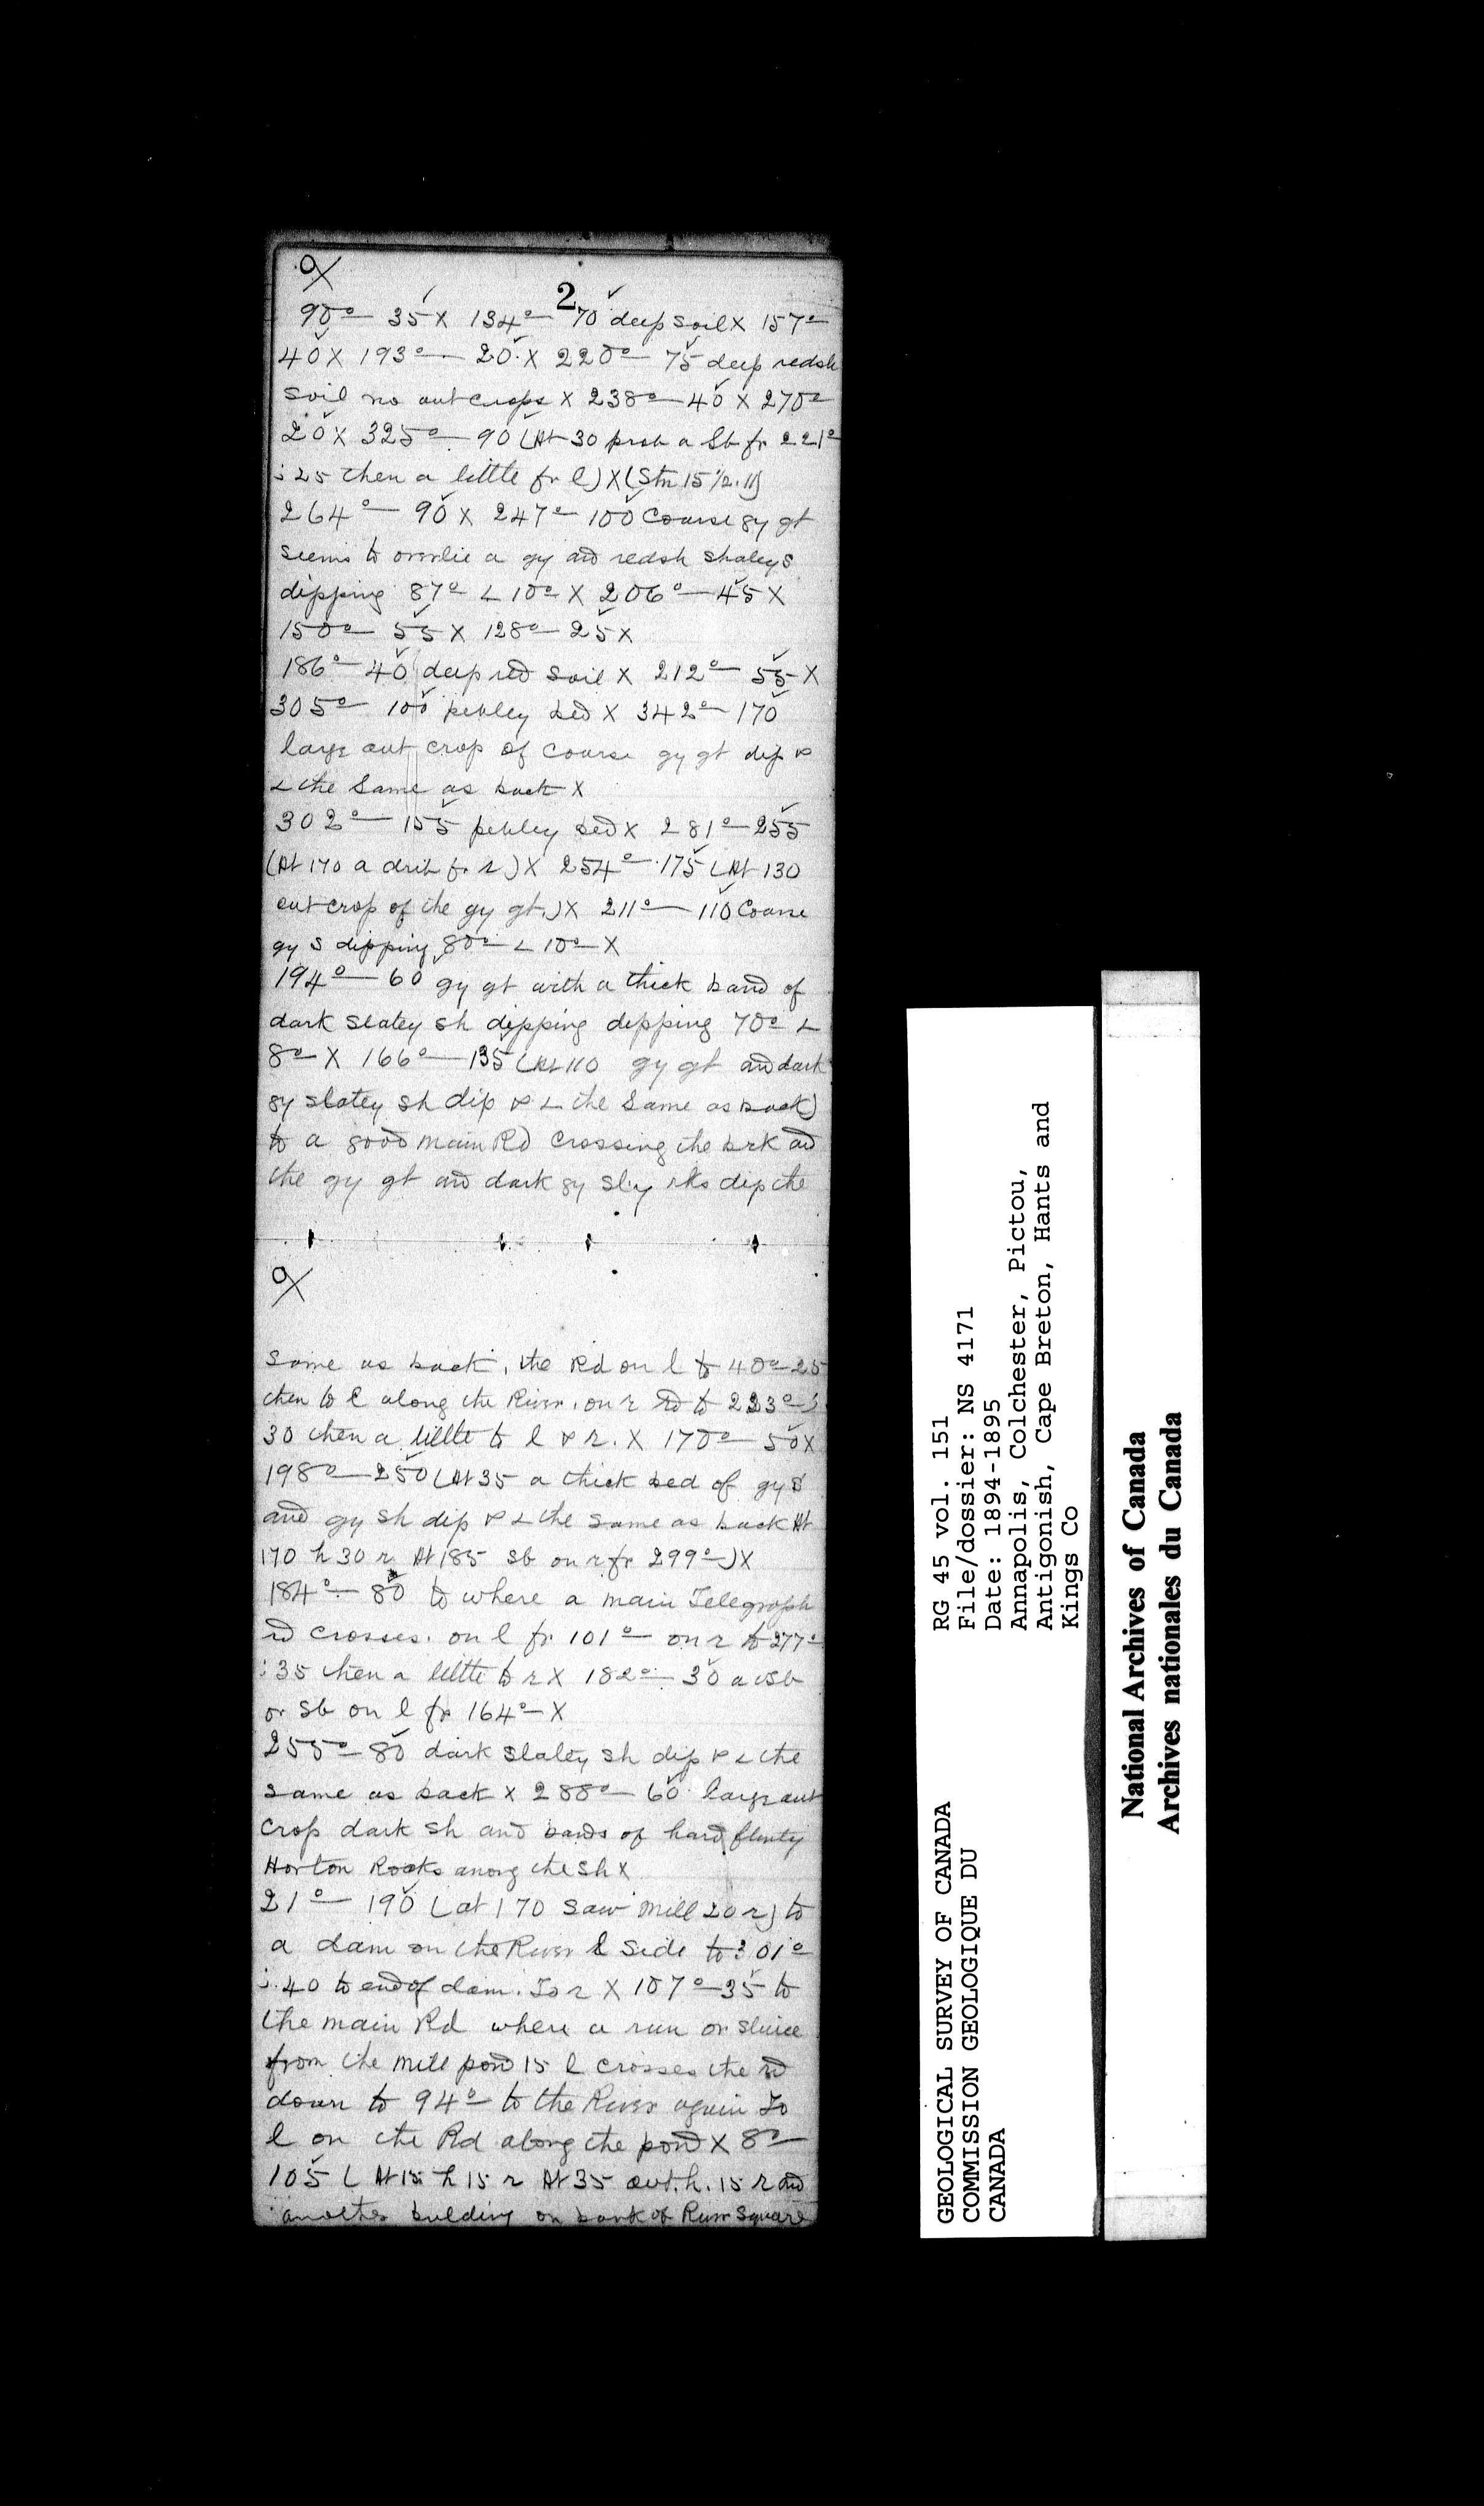 2
90°— 35 X 134°— 70 deep soil X 157°—
40 X 193°— 20 X 220°— 75 deep redsh
soil no outcrops X 238°— 40 X 270°—
20 X 325°— 90 (At 30 prob a Sb fr 221°
: 25 then a little fr l) X (Stn 15 1/2.11)
264°— 90 X 247°— 100 Coarse gy gt
seems to overlie a gy and redsh shaley S
dipping 87°— L 10°— X 206°— 45 X
150°— 55 X 128°— 25 X
186°— 40 deep red soil X 212°— 55 X
305°— 100 pebley bed X 342°— 170
large out crop of coarse gy gt dip &
L the Same as back X
302°— 155 pebley bed X 281°— 255
(At 170 a drib fr r) X 254°— 175 (At 130
out crop of the gy gt.) X 211°— 110 Coarse
gy S dipping 80°— L 10°— X
194°— 60 gy gt with a thick band of
dark slatey sh dipping dipping 70°— L
8°— X 166°— 135 (At 110 gy gt and dark
gy slatey sh dip & L the Same as back)
to a good main Rd crossing the brk and
the gy gt and dark gy sly rks dip the
Same as back, the Rd on l to 40°— 25
then to l along the River, on r rd to 223°— :
30 then a little to l & r. X 170°— 50 X
198°— 250 (At 35 a thick bed of gy S
and gy sh dip & L the same as back At
170 h 30 r At 185 sb on r fr 299°—) X
184°— 80 to where a main Telegraph
rd crosses. on l fr 101°— on r to 277°—
: 35 then a little to r X 182°— 30 a vsb
or Sb on l fr 164°— X
255°— 80 dark slatey sh dip & L the
same as back X 288°— 60 large out
crop dark sh and bands of hard flinty
Horton Rocks among the sh X
21°— 190 (at 170 Saw mill 20 r) to
a dam on the River l Side to 301°—
: 40 to end of dam. To r X 107°— 35 to
the main Rd where a run or sluice
from the mill pond 15 l crosses the rd
down to 94°— to the River again To
l on the Rd along the pond X 8°—
105 (At 15 h 15 r At 35 out.h. 15 r and
another building on bank of River Square
RG 45 vol. 151
File/dossier: NS 4171
Date: 1894-1895
Annapolis, Colchester, Pictou,
Antigonish, Cape Breton, Hants and
Kings Co
GEOLOGICAL SURVEY OF CANADA
COMMISSION GEOLOGIQUE DU
CANADA
National Archives of Canada
Archives nationales du Canada